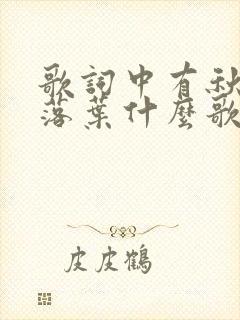 歌詞中有秋
落葉什麼歌
皮皮鶴